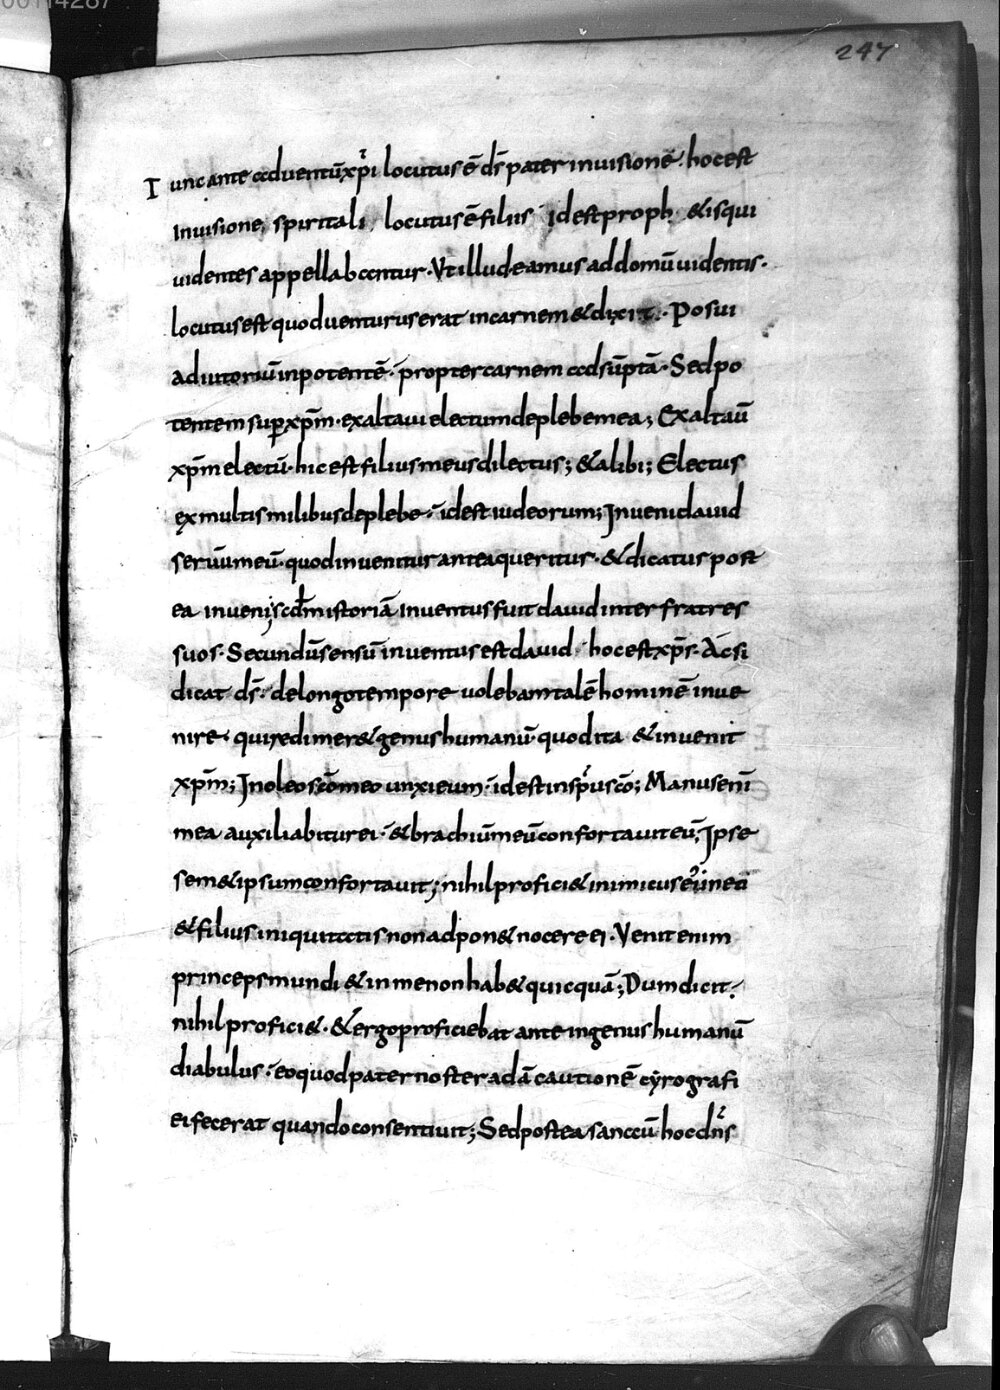 00114287
247
Tunc ante aduentū xp̄i locutus ē ds̄ pater in uisionē. hoc est
In uisione spiritali locutus ē filiis idest proph & is qui
uidentes appellabantur. Vt illud eamus ad domū uidentis.
locutus est quod uenturus erat in carnem & dixit. Posui
adiutoriū in potentē. propter carnem adsūptā. Sed po
tentem sup xp̄m. exaltaui electum de plebe mea; Exaltaū
xp̄m electū. hic est filius meus dilectus; & alibi; Electus
ex multis milibus de plebe. idest iudeorum; Inueni dauid
seruū meū. quod inuenitur antea queritur. & dicatus post
ea inueni; scdm istoriā inuentus fuit dauid inter fratres
suos. Secundū sensū inuentus est dauid. hoc est xp̄s. Ac si
dicat ds̄. de longo tempore uolebam talē hominē inue
nire. qui redimer& genus humanū quod ita & inuenit
xp̄m; In oleo scō meo unxi eum. idest in sp̄u scō; Manus enī
mea auxiliabitur ei. & brachiū meū confortauit eū; Ipse
sem& ipsum confortauit; nihil profici& inimicus
& filius iniquitatis non adpon& nocere ei. Venit enim
princeps mundi & in me non hab& quicquā; Dum dicit.
nihil profici&. & ergo proficiebat ante in genus humanū
diabulus. eo quod pater noster adā cautionē cyrografi
ei fecerat quando consentiuit; Sed postea hoc dn̄s